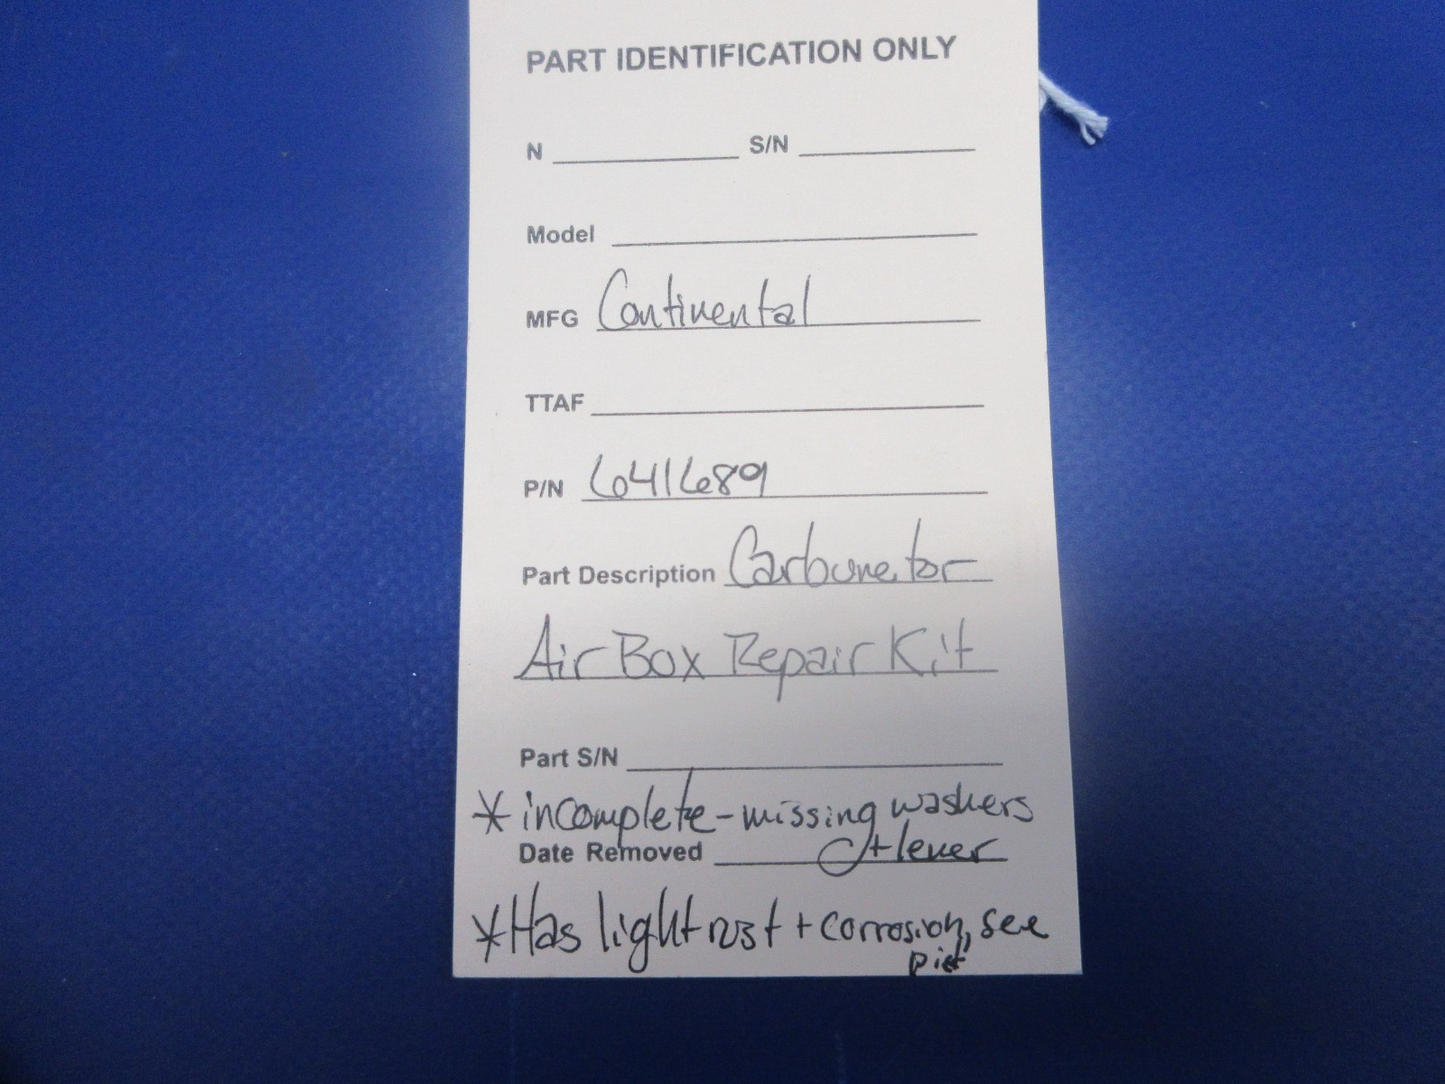 PART IDENTIFICATION ONLY
N S/N
Model
MFG Continental
TTAF
P/N 641689
Part Description Carburetor
Air Box Repair Kit
Part S/N
* incomplete - missing washers
Date Removed + lever
* Has light rust + corrosion, see
pict